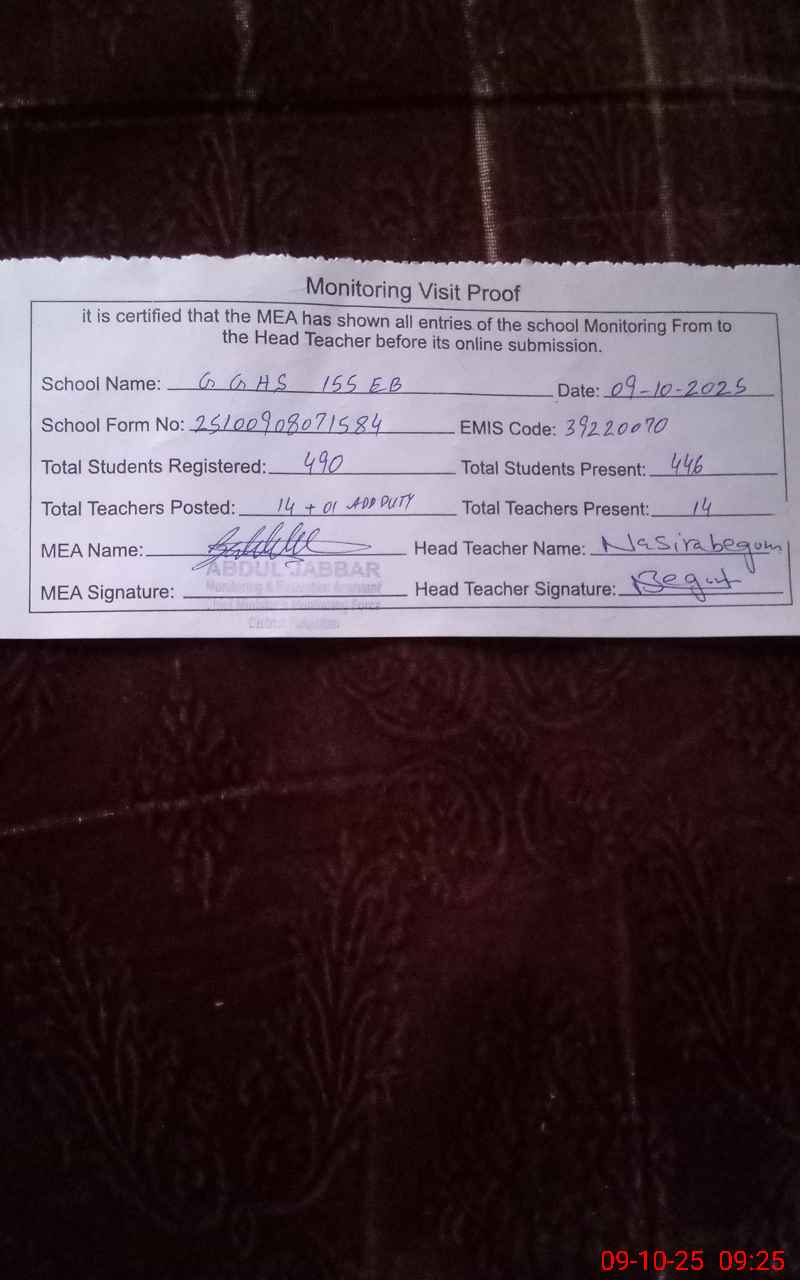 Monitoring Visit Proof
it is certified that the MEA has shown all entries of the school Monitoring From to
the Head Teacher before its online submission.
School Name: G G H S 155 EB Date: 09-10-2025
School Form No: 25100908071584 EMIS Code: 39220070
Total Students Registered: 490 Total Students Present: 446
Total Teachers Posted: 14 + 01 ADD DUTY Total Teachers Present: 14
MEA Name: Head Teacher Name: Nasirabegum
ABDUL JABBAR
MEA Signature: Head Teacher Signature: Begum
Monitoring & Evaluation Assistant
Chief Minister's Monitoring Force
District
09-10-25 09:25